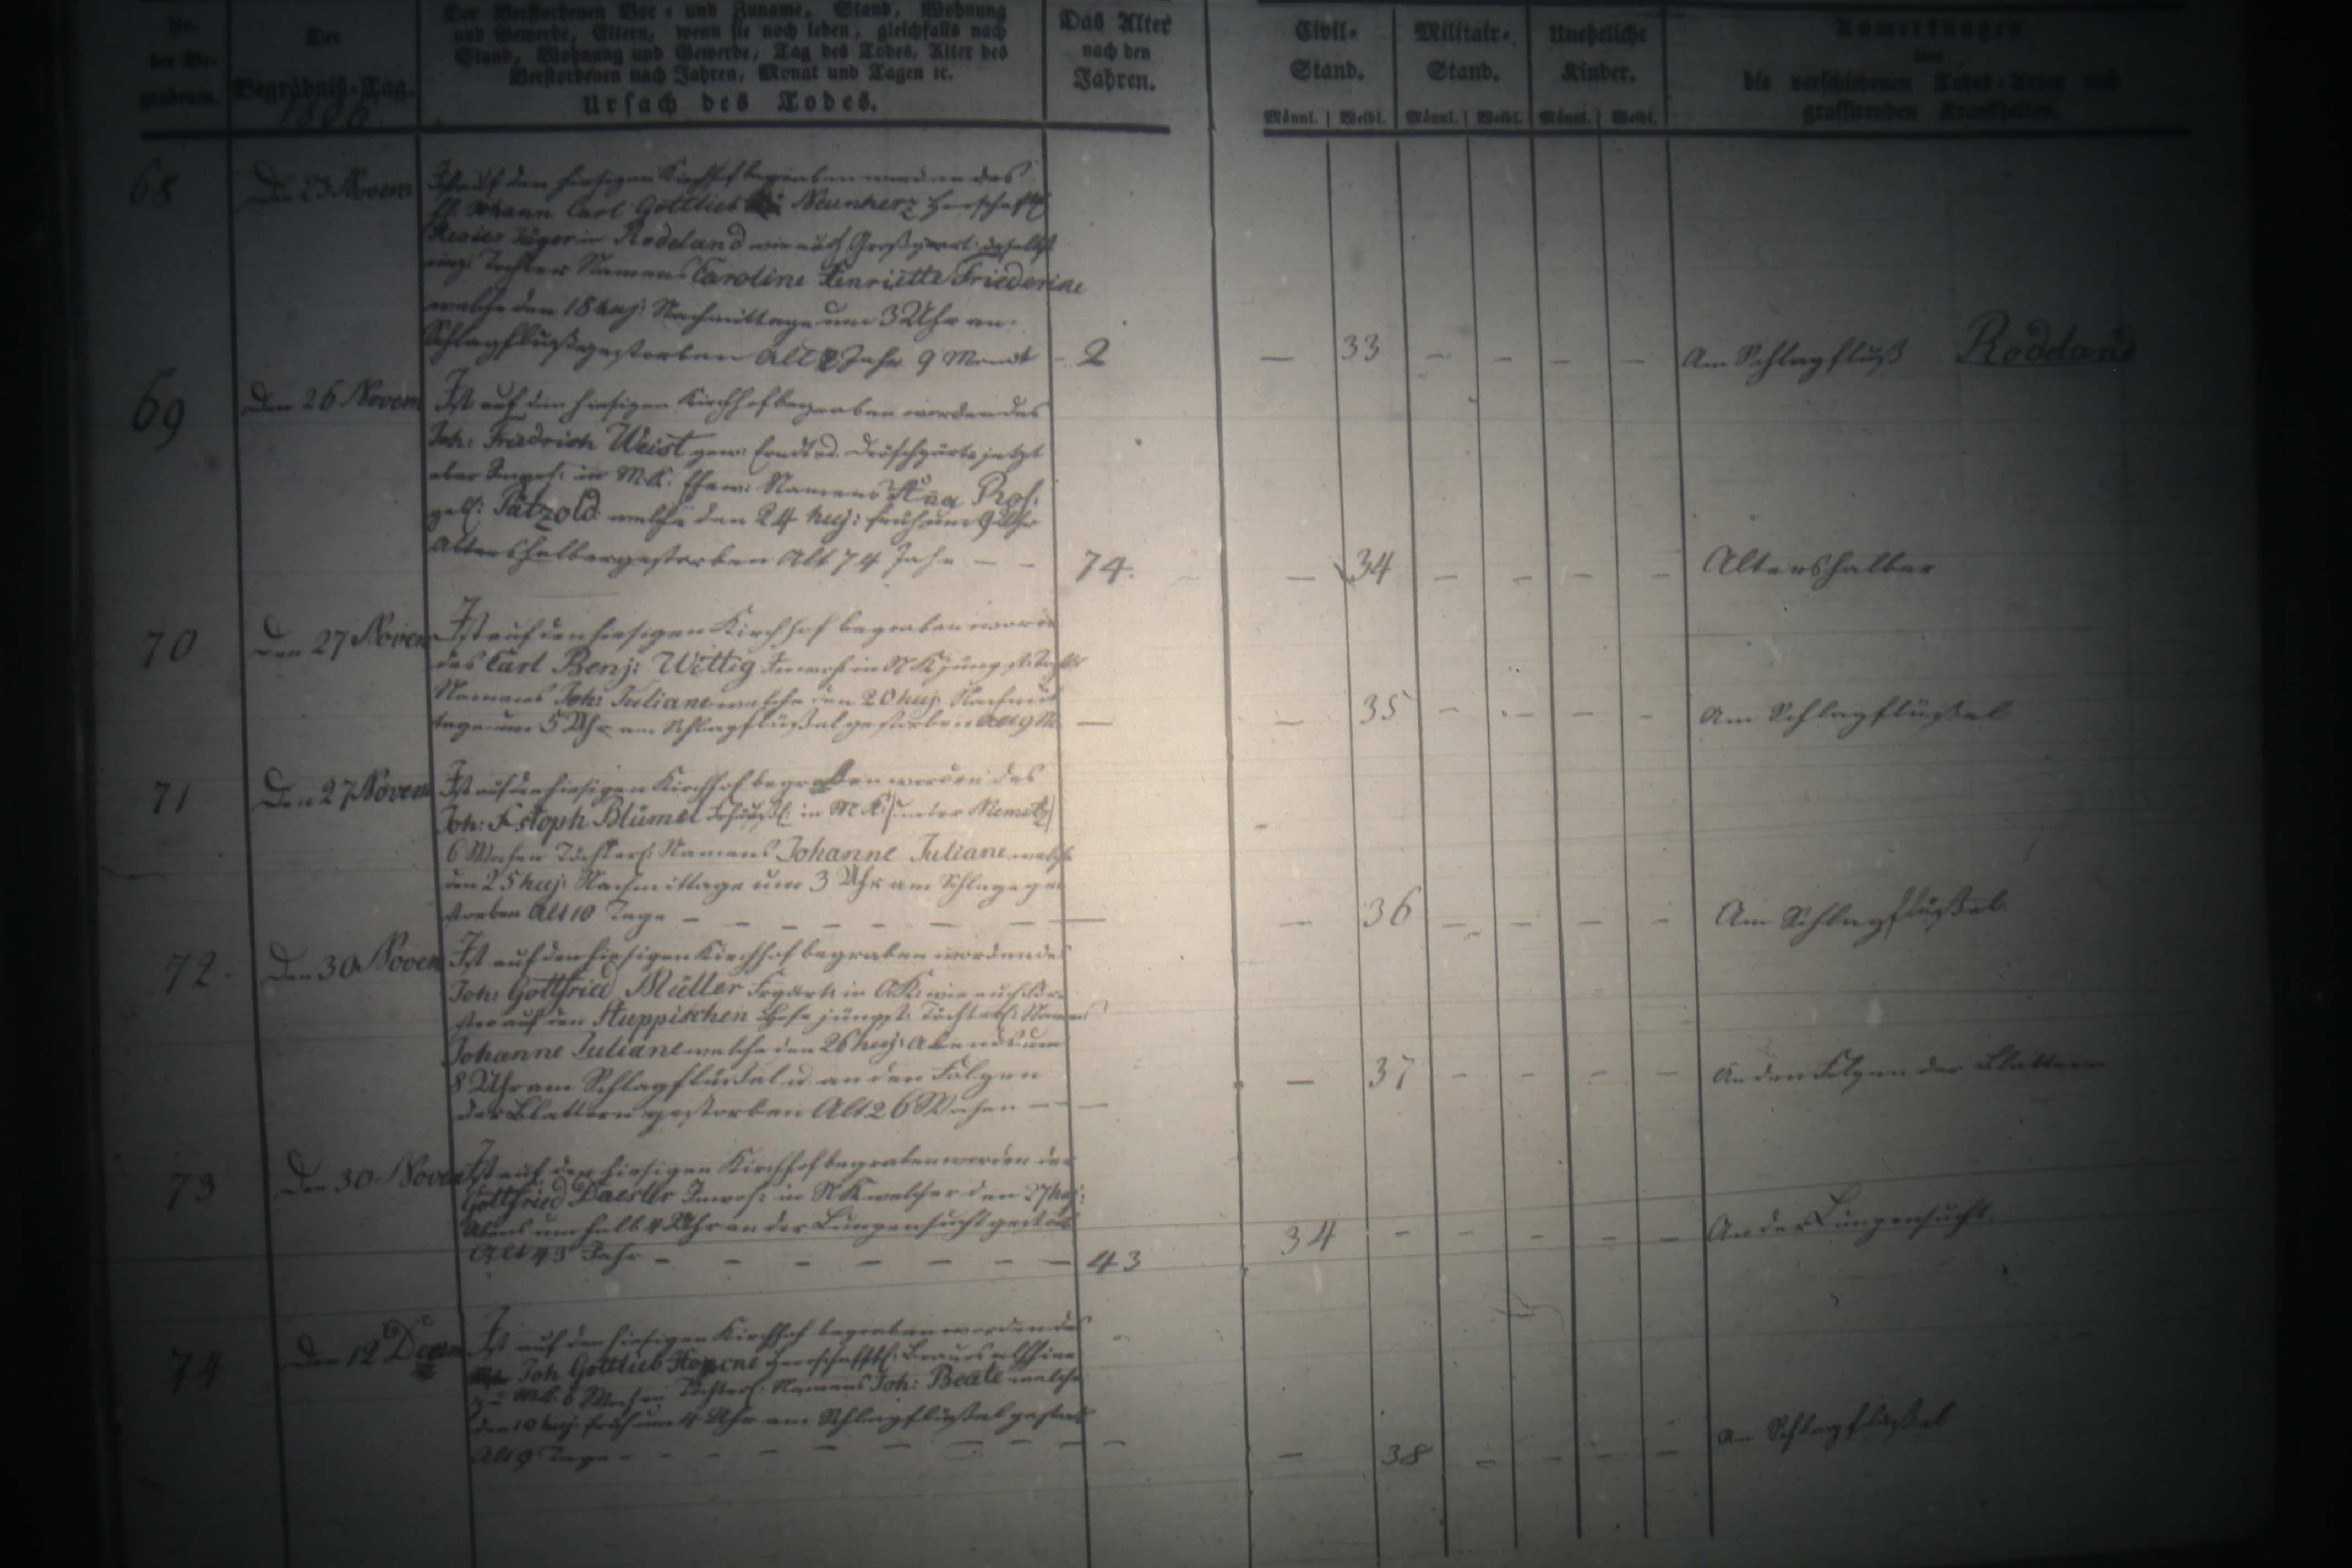 No. der Begrabenen.
Der Begräbniß-Tag.
1806
Der Verstorbenen Vor- und Zuname, Stand, Wohnung
und Gewerbe, Eltern, wenn sie noch leben, gleichfalls nach
Stand, Wohnung und Gewerbe, Tag des Todes, Alter des
Verstorbenen nach Jahren, Monat und Tagen ꝛc.
Ursach des Todes.
Das Alter
nach den
Jahren.
Civil-
Stand.
Männl. | Weibl.
Militair-
Stand.
Männl. | Weibl.
Uneheliche
Kinder.
Männl. | Weibl.
Anmerkungen
über
die verschiedenen Todes-Arten und
grassirenden Krankheiten.
68
Den 23 Novem
Ist auf den hiesigen Kirchhof begraben worden des
H. Johann Carl Gottlieb Neunherz Herrschaftl
Revier Jäger in Rodeland wie auch daselbst
Tochter Namens Caroline Henriette Friederike
welche den 18 huj: Nachmittage um 3 Uhr am
Schlagfluß gestorben Alt 2 Jahr 9 Monat
- 2
— 33 - - - -
Am Schlagfluß Rodeland
69
Den 26 Novem
Ist auf den hiesigen Kirchhof begraben worden des
Joh: Friedrich Weist gew: jetzt
aber Inwoh: in M.K. Ehew: Namens Aña Ros:
geb: Pätzold welche den 24 huj: früh um 9 Uhr
Altershalber gestorben Alt 74 Jahr — -
74.
— 34 - - - -
Altershalber
70
Den 27 Novem
Ist auf den hiesigen Kirchhof begraben word
des Carl Benj: Wittig Inwoh: in N K jüngst.
Namens Joh: Juliane welche den 20 huj Nachmit
tage um 5 Uhr am Schlagflüßel gestorben Alt 9 M. —
— 35 - - - -
Am Schlagflüßel
71
Den 27 Novem
Ist auf den hiesigen Kirchhof begraben worden des
Joh: stoph Blümel in M K:
6 Wochen Töchterl: Namens Johanne Juliane welche
den 25 huj: Nachmittage um 3 Uhr am Schlage ge
storben Alt 10 Tage - - - - - - - —
— 36 - - - -
Am Schlagflüßel.
72.
Den 30 Novem
Ist auf den hiesigen Kirchhof begraben worden des
Joh: Gottfried Müller Frgärt: in AK: wie auch
auf den Hofe jüngst: Töchterl: Namens
Johanne Juliane welche den 26 huj: Abends um
8 Uhr am Schlagflüßel u. an den Folgen
der Blattern gestorben Alt 26 Wochen — —
— 37 - - - -
An den Folgen der Blattern
73
Den 30 Novem
Ist auf den hiesigen Kirchhof begraben worden der
Gottfried Inwoh: in N K welcher den 27 huj:
Abens um halb 4 Uhr an der Lungensucht gestorb
Alt 43 Jahr - - - - - - —
43
34 - - - - -
An der Lungensucht.
74
Den 12 Decem
Ist auf den hiesigen Kirchhof begraben worden des
Joh Gottlieb herrschaftl:
zu M.K. 6 Wochen Töchterl: Namens Joh: Beate welche
den 10 huj: früh um 4 Uhr am Schlagflüßel gestorb
Alt 9 Tage - - - - - - - -
— 38 - - - -
Am Schlagflüßel